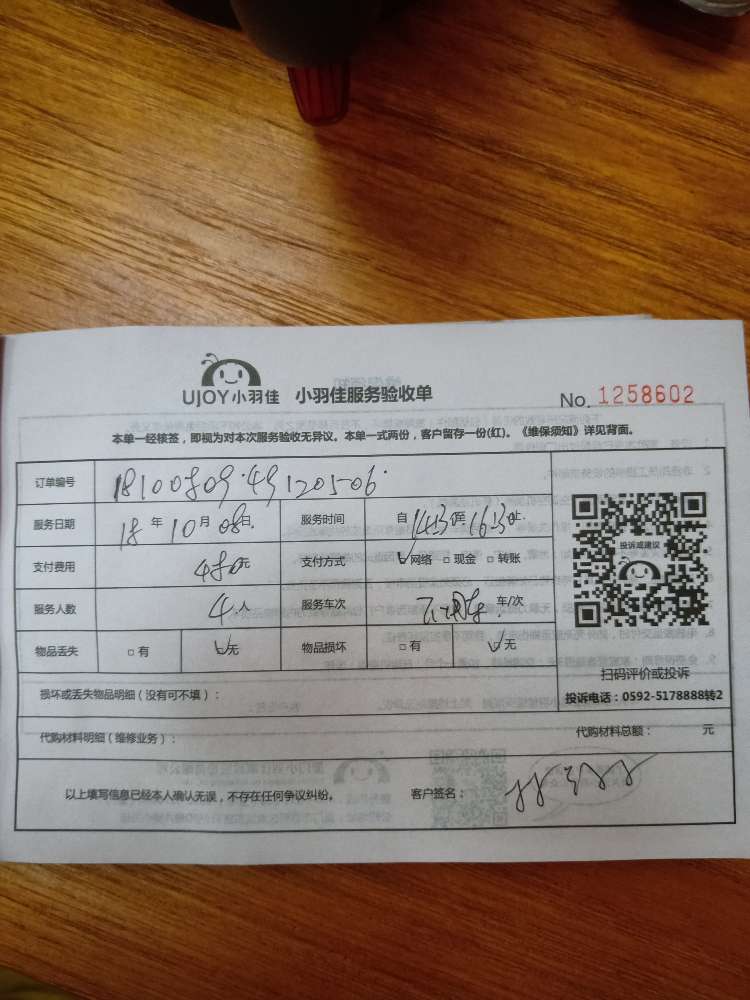 UJOY小羽佳 小羽佳服务验收单 No. 1258602
本单一经核签，即视为对本次服务验收无异议。本单一式两份，客户留存一份(红)。《维保须知》详见背面。
订单编号 18100809·49120506
服务日期 18年10月08日 服务时间 自1430至1630止
支付费用 480元 支付方式 网络 □现金 □转账
服务人数 4人 服务车次 车/次
物品丢失 □有 无 物品损坏 □有 无
投诉或建议
扫码评价或投诉
投诉电话：0592-5178888转2
损坏或丢失物品明细（没有可不填）：
代购材料明细（维修业务）： 代购材料总额： 元
以上填写信息已经本人确认无误，不存在任何争议纠纷。 客户签名：